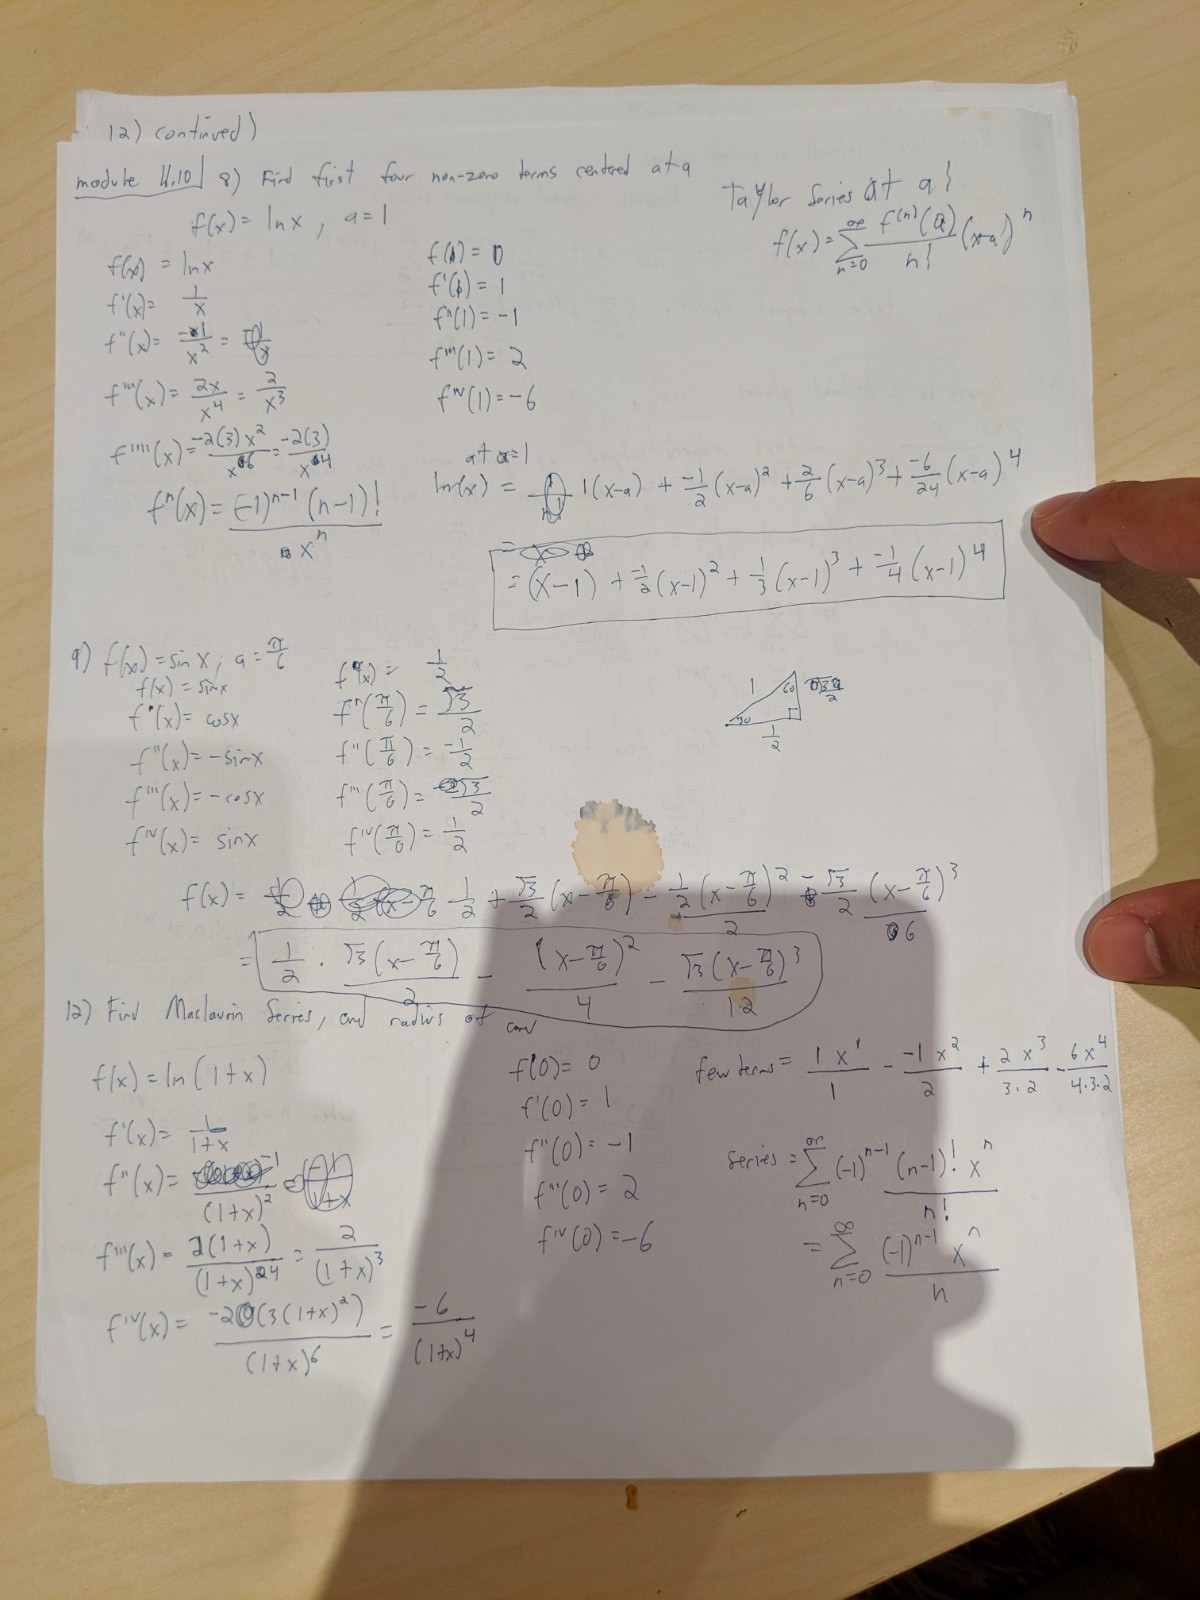 12) continued)
module 11.10 8) Find first four non-zero terms centered at a
f(x) = lnx , a=1
Taylor Series at a:
f(x) = ∑_{n=0}^{∞} f^(n)(a)/n! (x-a)^n
f(x) = lnx
f'(x) = 1/x
f''(x) = -1/x^2 =
f'''(x) = 2x/x^4 = 2/x^3
f''''(x) = -2(3)x^2/x^6 = -2(3)/x^4
f^n(x) = (-1)^{n-1} (n-1)!/x^n
f(1) = 0
f'(1) = 1
f''(1) = -1
f'''(1) = 2
f^iv(1) = -6
at a=1
ln(x) = 1(x-a) + -1/2 (x-a)^2 + 2/6 (x-a)^3 + -6/24 (x-a)^4
= (x-1) + -1/2 (x-1)^2 + 1/3 (x-1)^3 + -1/4 (x-1)^4
9) f(x) = sin x, a = π/6
f(x) = sinx
f'(x) = cosx
f''(x) = -sinx
f'''(x) = -cosx
f^iv(x) = sinx
f(x) = 1/2
f'(π/6) = √3/2
f''(π/6) = -1/2
f'''(π/6) = -√3/2
f^iv(π/6) = 1/2
1 60
30
1/2
f(x) = 1/2 + √3/2 (x-π/6) - 1/2 (x-π/6)^2/2 - √3/2 (x-π/6)^3/6
= 1/2 . √3(x-π/6)/2 - (x-π/6)^2/4 - √3(x-π/6)^3/12
12) Find Maclaurin Series, and radius of conv
f(x) = ln(1+x)
f'(x) = 1/1+x
f''(x) = -1/(1+x)^2
f'''(x) = 2(1+x)/(1+x)^4 = 2/(1+x)^3
f^iv(x) = -2(3(1+x)^2)/(1+x)^6 = -6/(1+x)^4
f(0) = 0
f'(0) = 1
f''(0) = -1
f'''(0) = 2
f^iv(0) = -6
few terms = 1x^1/1 - -1x^2/2 + 2x^3/3·2 - 6x^4/4·3·2
series = ∑_{n=0}^{∞} (-1)^{n-1} (n-1)! x^n/n!
= ∑_{n=0}^{∞} (-1)^{n-1} x^n/n